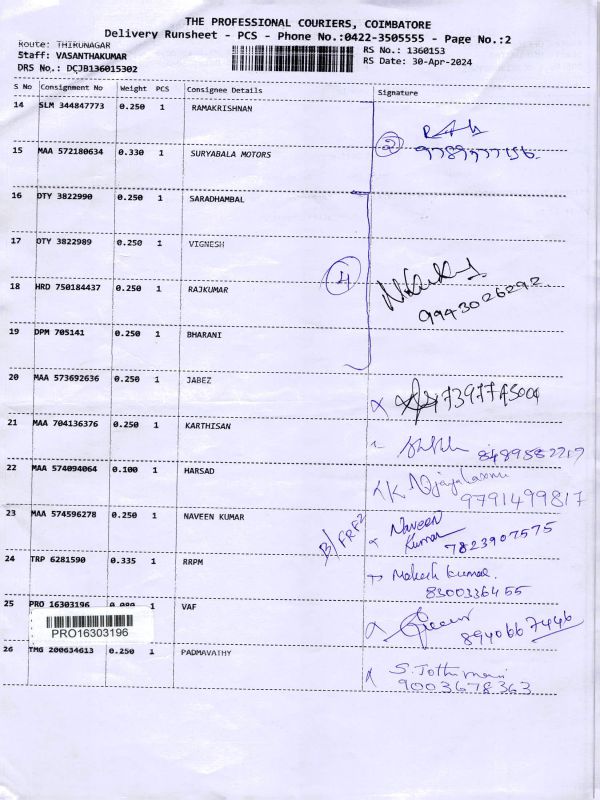 THE PROFESSIONAL COURIERS, COIMBATORE
Delivery Runsheet - PCS - Phone No.:0422-3505555 - Page No.:2
Route: THIRUNAGAR
Staff: VASANTHAKUMAR
DRS No.: DCJB136015302
RS No.: 1360153
RS Date: 30-Apr-2024
S No Consignment No Weight PCS Consignee Details Signature
14 SLM 344847773 0.250 1 RAMAKRISHNAN
②
15 MAA 572180634 0.330 1 SURYABALA MOTORS
16 DTY 3822990 0.250 1 SARADHAMBAL
17 DTY 3822989 0.250 1 VIGNESH
④
18 HRD 750184437 0.250 1 RAJKUMAR
9943026292
19 DPM 705141 0.250 1 BHARANI
20 MAA 573692636 0.250 1 JABEZ
21 MAA 704136376 0.250 1 KARTHISAN
8489582217
22 MAA 574094064 0.100 1 HARSAD
K Vijayalaxmi
9791499817
23 MAA 574596278 0.250 1 NAVEEN KUMAR
Naveen
Kumar 7823907575
24 TRP 6281590 0.335 1 RRPM
Mahesh kumar.
8300336455
25 PRO 16303196 0.080 1 VAF
8940667446
PRO16303196
26 TMG 200634613 0.250 1 PADMAVATHY
S. Jothimani
9003678363